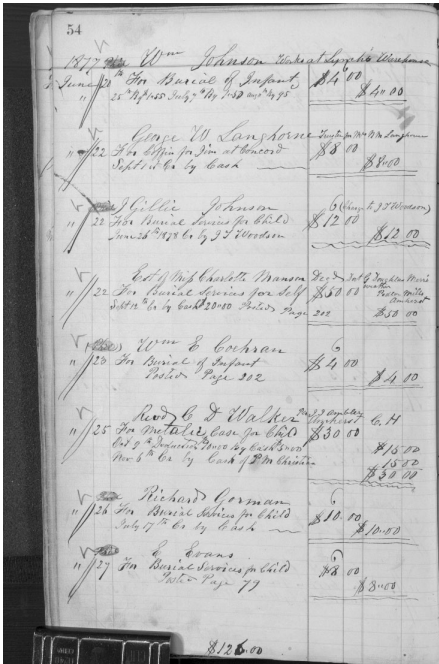 54
1877 Wm Johnson Works at Warehouse
June 20th For Burial of Infant $4 00
25th July 7th $4.00
George W Langhorne
" 22 For Coffin for Jim at Concord $8 00
Sept 1st Cr by Cash $8.00
J Gillie Johnson 6 (Charge to J T Woodson)
" 22 For Burial Services for Child $12 00
June 26th 1878 Cr by J T Woodson $12.00
Est of Miss Charlotte Manson Decd
" 22 For Burial Services for Self $50 00
Sept 12th Cr by Cash $20.00 Posted Page 202 $50 00
Wm E Cochran 6
" 23 For Burial of Infant $4 00
Posted Page 202 $4 00
Revd C D Walker Amherst C. H
" 25 For Metalic Case for Child $30 00
Oct 9th By Cash $15.00
Nov 6th Cr by Cash of P M Christian 15 00
$30.00
Richard Gorman 6
" 26 For Burial Services for Child $10.00
July 17th Cr by Cash $10.00
E Evans 6
" 27 For Burial Services for Child $8 00
Posted Page 79 $8.00
$126.00